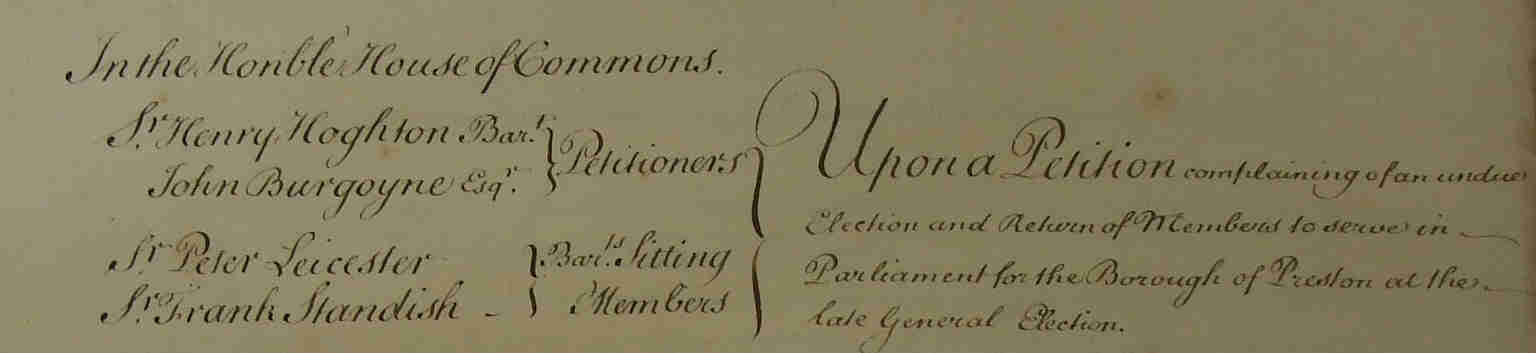 In the Honble House of Commons.
Sr. Henry Hoghton Bart.
John Burgoyne Esqr.
Petitioners
Sr. Peter Leicester
Sr. Frank Standish
Barts. Sitting
Members
Upon a Petition complaining of an undue
Election and Return of Members to serve in
Parliament for the Borough of Preston at the
late General Election.